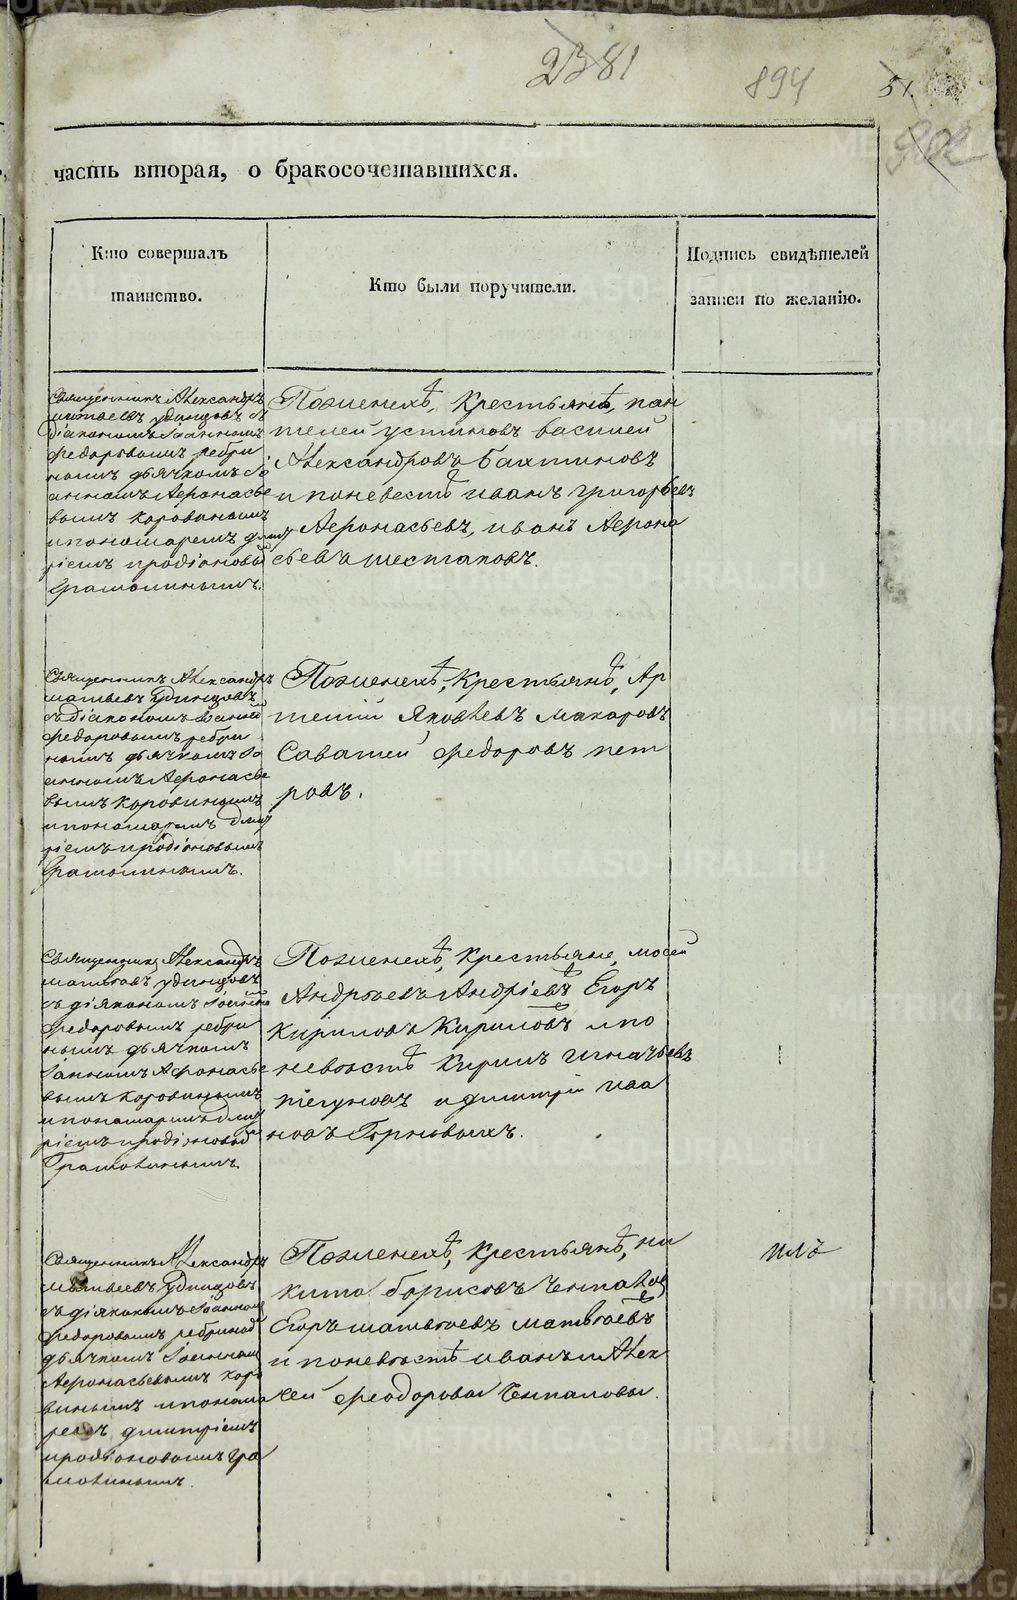 2381
894
51.
902
часть вторая, о бракосочетавшихся.
Кто совершалъ
таинство.
Кто были поручители.
Подпись свидѣтелей
записи по желанію.
Священникъ Александръ
матвеевъ удинцовъ съ
діакономъ Іанномъ
Федоровымъ ребри
нымъ дьячкомъ Іо
анномъ Афонасье
вымъ коровинымъ
и пономаремъ дмит
ріемъ иродіоновы
Грамолинымъ.
Поженехѣ, крестьянѣ, пан
телей устиновъ василей
Александровъ Бахтиновъ
и поневестѣ иванъ григорьевъ
Афонасьевъ, иванъ Афона
сьевъ шестаковъ.
Священникъ Александръ
матвѣевъ Удинцовъ
съ діакономъ Іанно
Федоровымъ ребри
нымъ дьячкомъ Іо
анномъ Афонасье
вымъ коровинымъ
и пономаремъ Дмит
ріемъ иродіоновымъ
Грамолинымъ.
Поженехѣ, крестьянѣ, Ар
темій Яковлевъ макаровъ
Саватей федоровъ пет
ровъ.
Священникъ Александръ
матвѣевъ удинцовъ
съ діякономъ Іоанно
Федоровымъ ребри
нымъ дьячкомъ
Іанномъ Афонасье
вымъ коровинымъ
и пономаремъ Дмит
ріемъ иродіоновы
Грамолинымъ.
Поженехѣ, крестьяне, мосей
Андрѣевъ Андріевъ Егоръ
Кириловъ Кириловъ и по
невѣстѣ Кирилъ игнатьевъ
пігуновъ и дмитрій ива
новъ Горновыхъ.
Священникъ Александръ
матвеевъ Удинцовъ
съ діякономъ Іоанном
Федоровымъ ребриной
дьячкомъ Іоанном
Афонасьевымъ коро
винымъ и понама
ремъ димитріемъ
иродіоновымъ гра
молинымъ.
Поженехѣ, крестьянѣ, ни
кита борисовъ Чепаловъ
Егоръ матвѣевъ матвѣевъ
и поневѣстѣ иванъ и Алек
сей феодоровы Чепаловы.